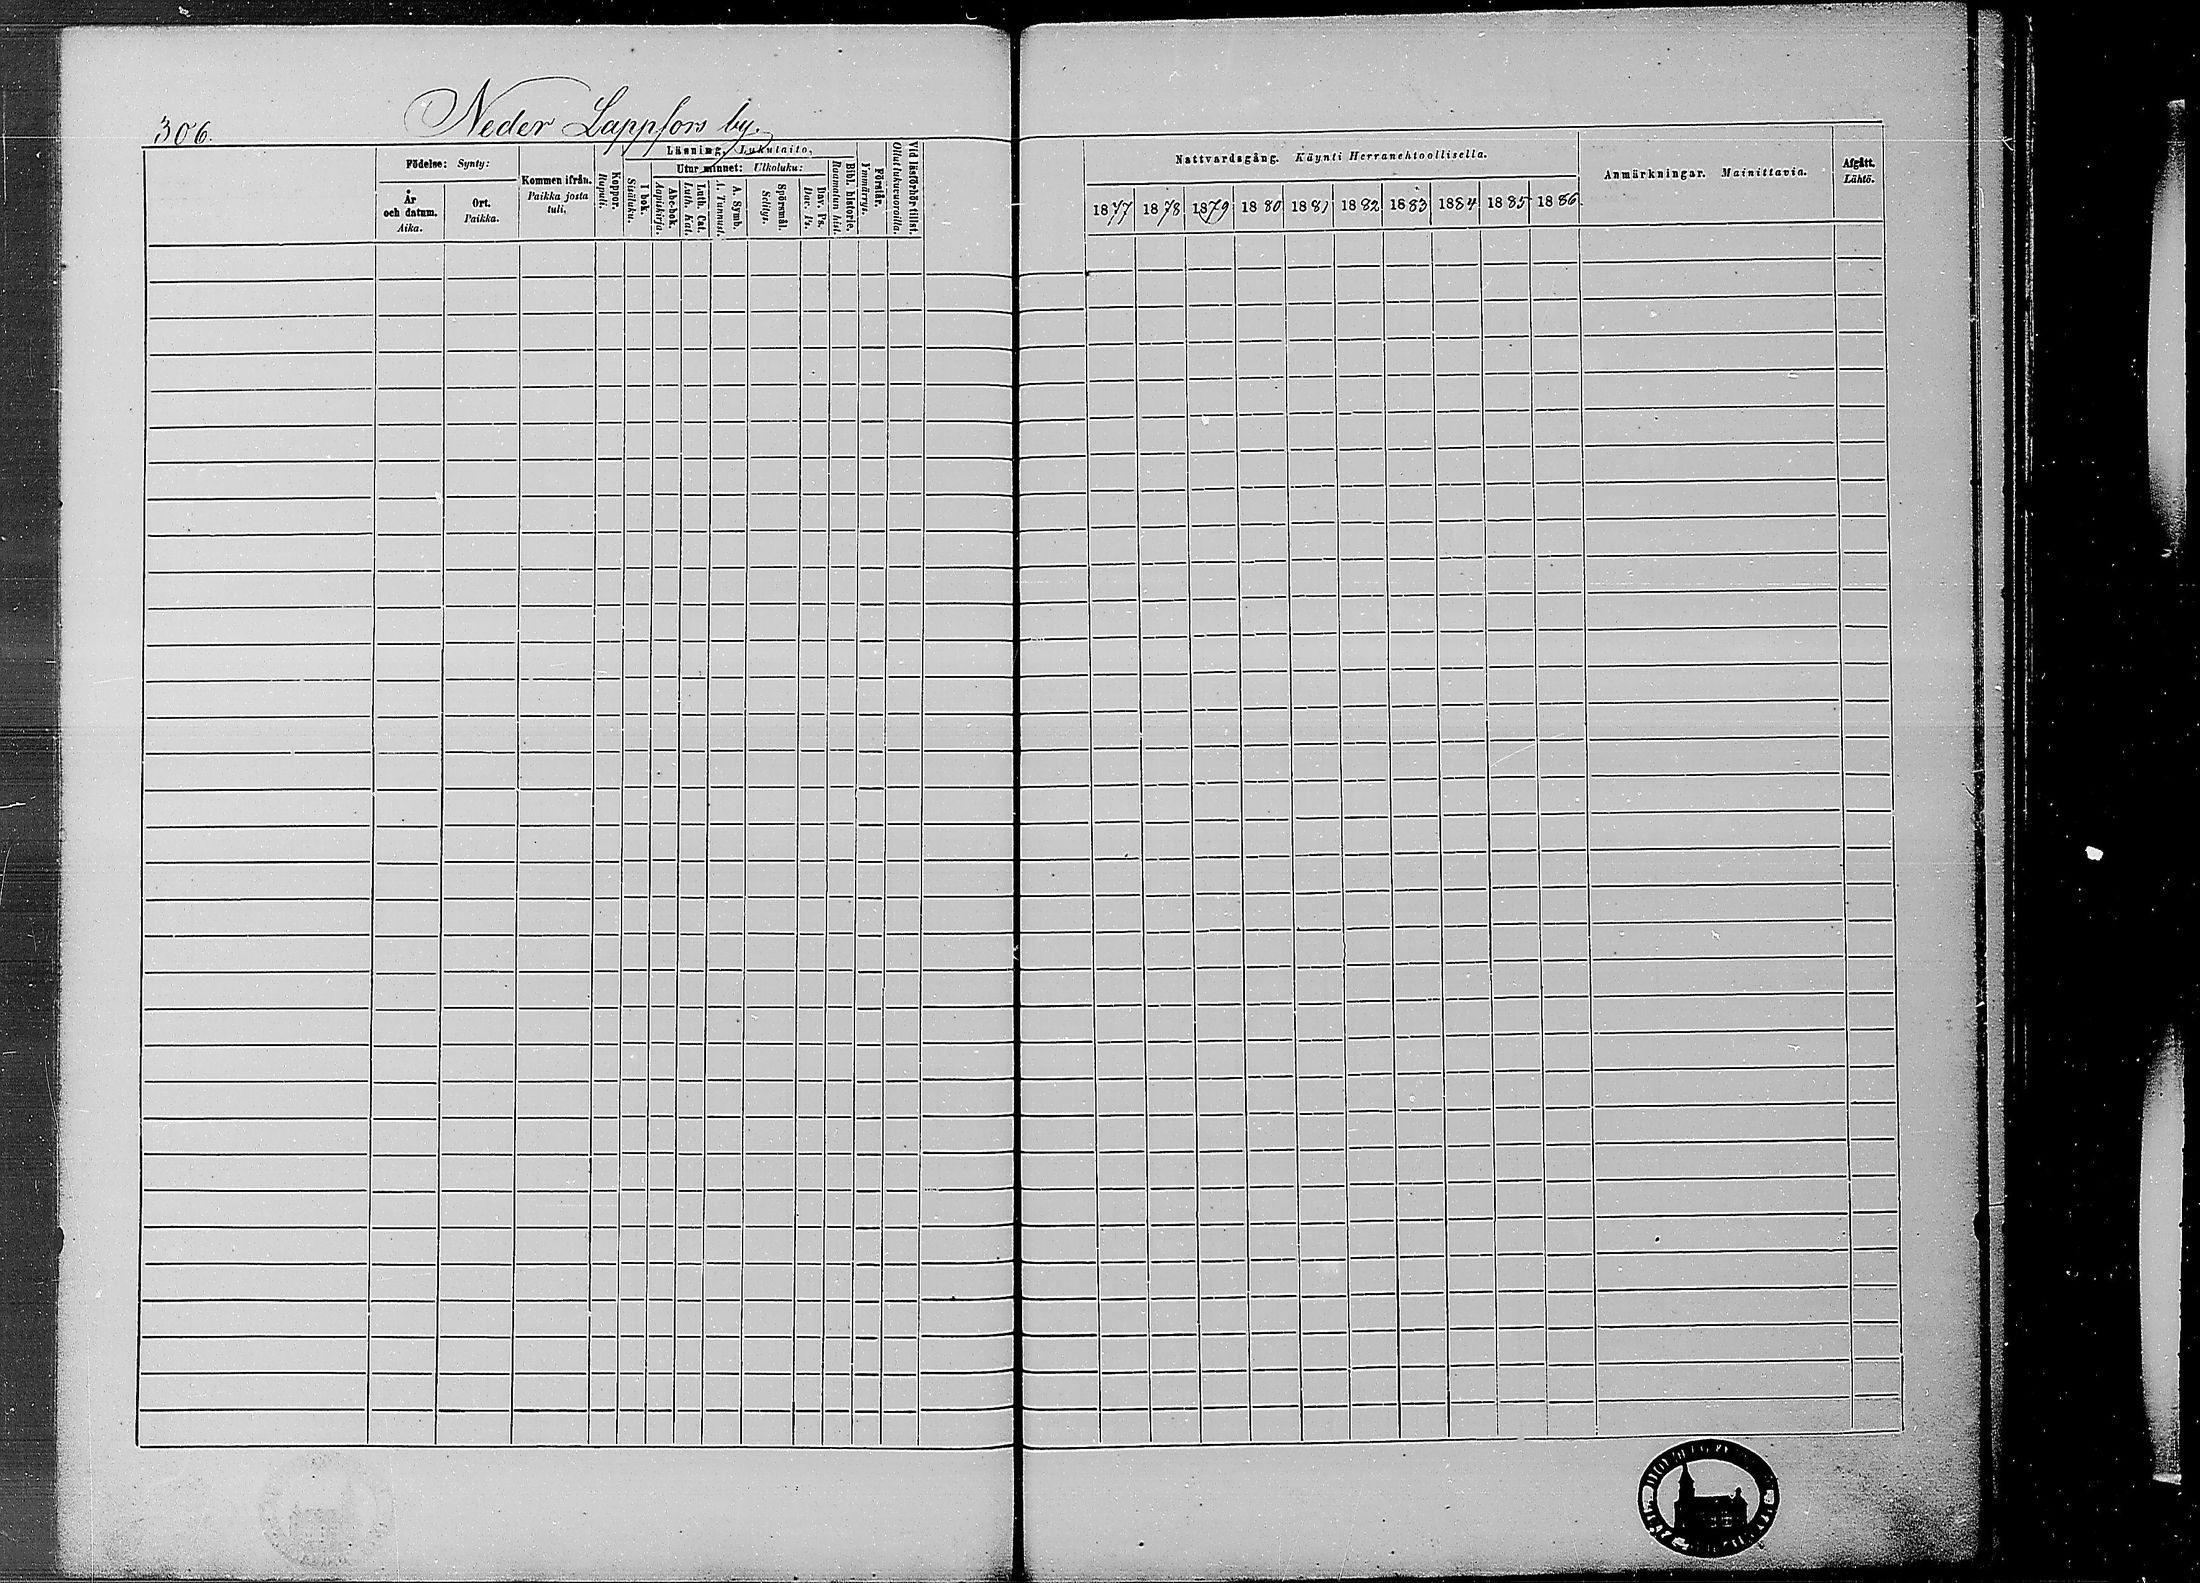 306.
Neder Lappfors by.
Födelse: Synty:
År och datum. Aika.
Ort. Paikka.
Kommen ifrån. Paikka josta tuli.
Koppor. Rupuli.
Läsning. Lukutaito.
I bok. Sisäluku.
Utur minnet: Ulkoluku:
Abc-bok. Aapiskirja.
Luth. Cat. Luth. Kat.
A. Symb. A. Tunnust.
Spörsmål. Selitys.
Dav. Ps. Dav. Ps.
Bibl. historie. Raamatun hist.
Förstår. Ymmärrys.
Vid läsförhör tillst. Ollut lukuvuoroilla.
Nattvardsgång. Käynti Herranehtoollisella.
1877 1878 1879 1880 1881 1882 1883 1884 1885 1886
Anmärkningar. Mainittavia.
Afgått. Lähtö.